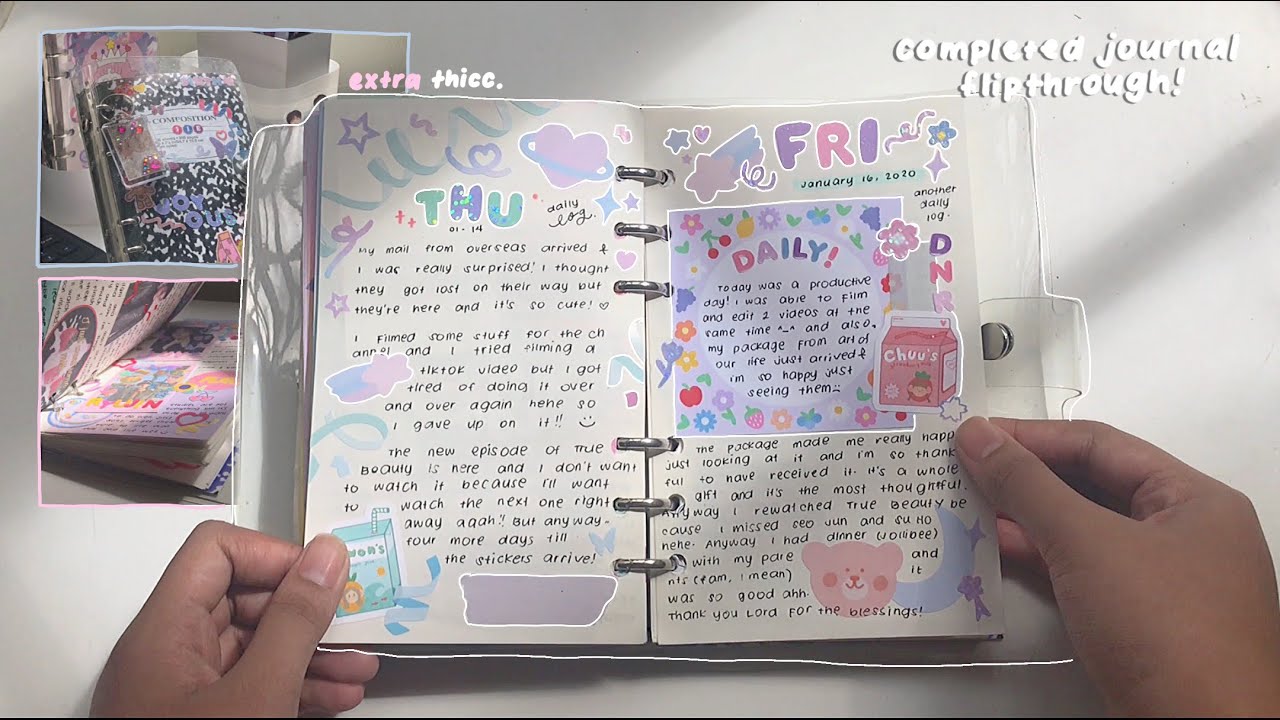 completed journal
flipthrough!
extra thicc.
COMPOSITION
JOY
OUS
THU
daily
log.
01 - 14
My mail from overseas arrived &
I was really surprised! I thought
they got lost on their way but
they're here and it's so cute! ♡
I filmed some stuff for the ch
annel and I tried filming a
tiktok video but I got
tired of doing it over
and over again hehe so
I gave up on it!! :)
The new episode of True
Beauty is here and I don't want
to watch it because I'll want
to watch the next one right
away agah!! But anyway..
four more days till
the stickers arrive!
FRI
January 16, 2020
another
daily
log.
DNR
DAILY!
Today was a productive
day! I was able to film
and edit 2 videos at the
same time ^-^ and also,
my package from art of
our life just arrived &
i'm so happy just
seeing them :)
Chuu's
The package made me really happ
just looking at it and i'm so thank
ful to have received it. It's a whole
gift and it's the most thoughtful.
Anyway I rewatched True Beauty be
cause I missed Seo Jun and Su Ho
hehe. Anyway I had dinner (Jollibee)
with my pare and
nts (fam, I mean) it
was so good ahh.
Thank you Lord for the blessings!